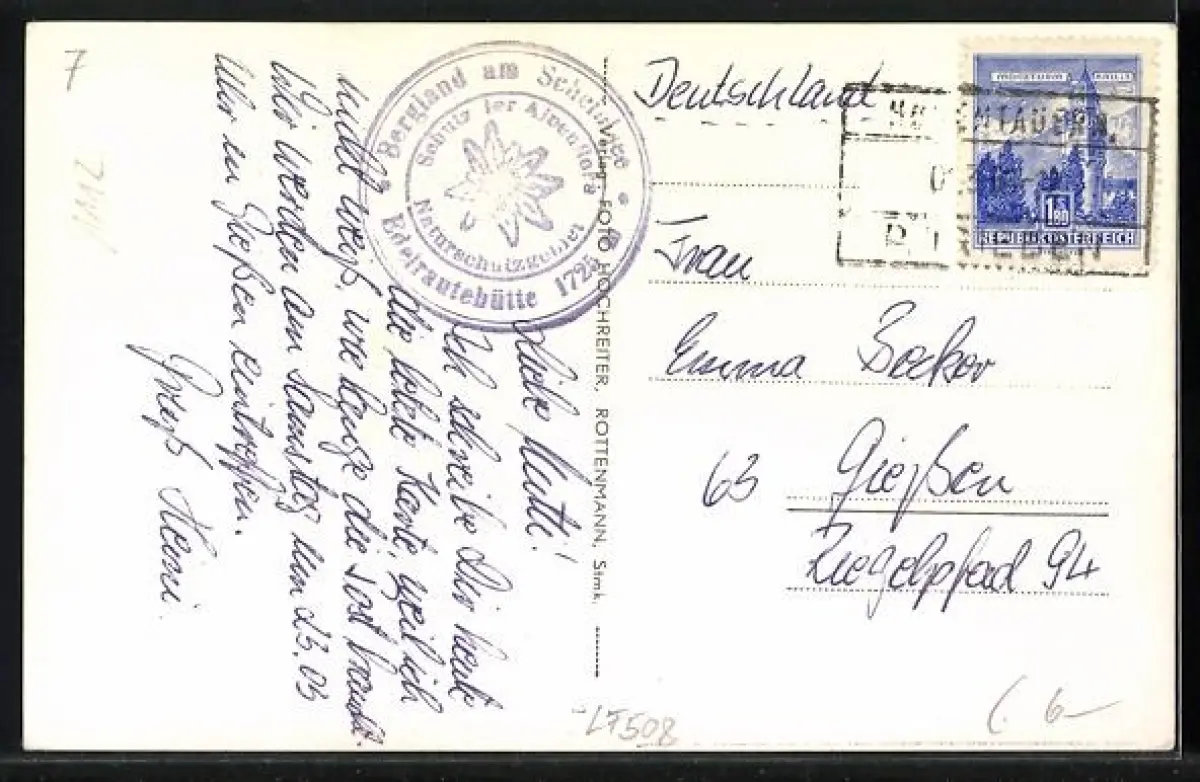 7
1112
Liebe Mutti!
Ich schreibe Dir heute
die letzte Karte, weil ich
nicht weiß wie lange die Post braucht.
Wir werden am Samstag um 23.03
Uhr in Gießen eintreffen.
Gruß Heini.
Bergland am Scheiblsee
Edelrautehütte 1725 m
Schutz der Alpenflora
Naturschutzgebiet
Verlag FOTO HOCHREITER, ROTTENMANN, Stmk.
Deutschland
1.80
REPUBLIK ÖSTERREICH
HOHENTAUERN
Frau
Emma Becker
63 Gießen
Ziegelpfad 94
LF508
6–